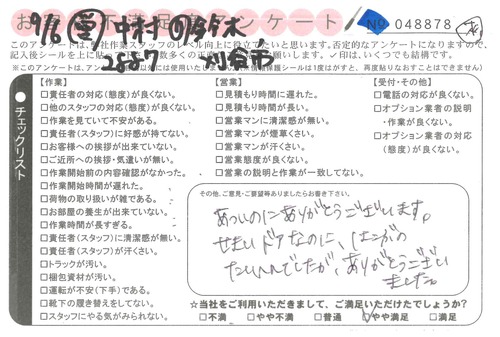 お 不満足 アンケート! No 048878
9/6 中村 鈴木
刈谷市
このアンケートは、弊社作業スタッフのレベル向上に役立てたいと思います。否定的なアンケートになりますので、
記入後シールを上に貼って 数多くの正 願いします。✓印は、いくつでも結構です。
(※このアンケートは、 以外には使用いたしま 報保護シールは1度はがすと、再度貼りなおすことはできません)
チェックリスト
【作業】
□責任者の対応(態度)が良くない。
□他のスタッフの対応(態度)が良くない。
□作業を見ていて不安がある。
□責任者(スタッフ)に好感が持てない。
□お客様への挨拶が出来ていない。
□ご近所への挨拶・気遣いが無い。
□作業開始前の内容確認がなかった。
□作業開始時間が遅れた。
□荷物の取り扱いが雑である。
□お部屋の養生が出来ていない。
□作業時間が長すぎる。
□責任者(スタッフ)に清潔感が無い。
□責任者(スタッフ)が汗くさい。
□トラックが汚い。
□梱包資材が汚い。
□運転が不安(下手)である。
□靴下の履き替えをしてない。
□スタッフにやる気がみられない。
【営業】
□見積もり時間に遅れた。
□見積もり時間が長い。
□営業マンに清潔感が無い。
□営業マンが煙草くさい。
□営業マンが汗くさい。
□営業態度が良くない。
□営業の説明と作業が一致してない。
【受付・その他】
□電話の対応が良くない。
□オプション業者の説明
・作業が良くない。
□オプション業者の対応
(態度)が良くない。
その他、ご意見・ご要望等ありましたらお書き下さい。
あついのにありがとうございます。
せまいドアなのに、はこぶの
たいへんでしたが、ありがとうござい
ました。
☆当社をご利用いただきまして、ご満足いただけたでしょうか?
□不満 □やや不満 □普通 □やや満足 □満足